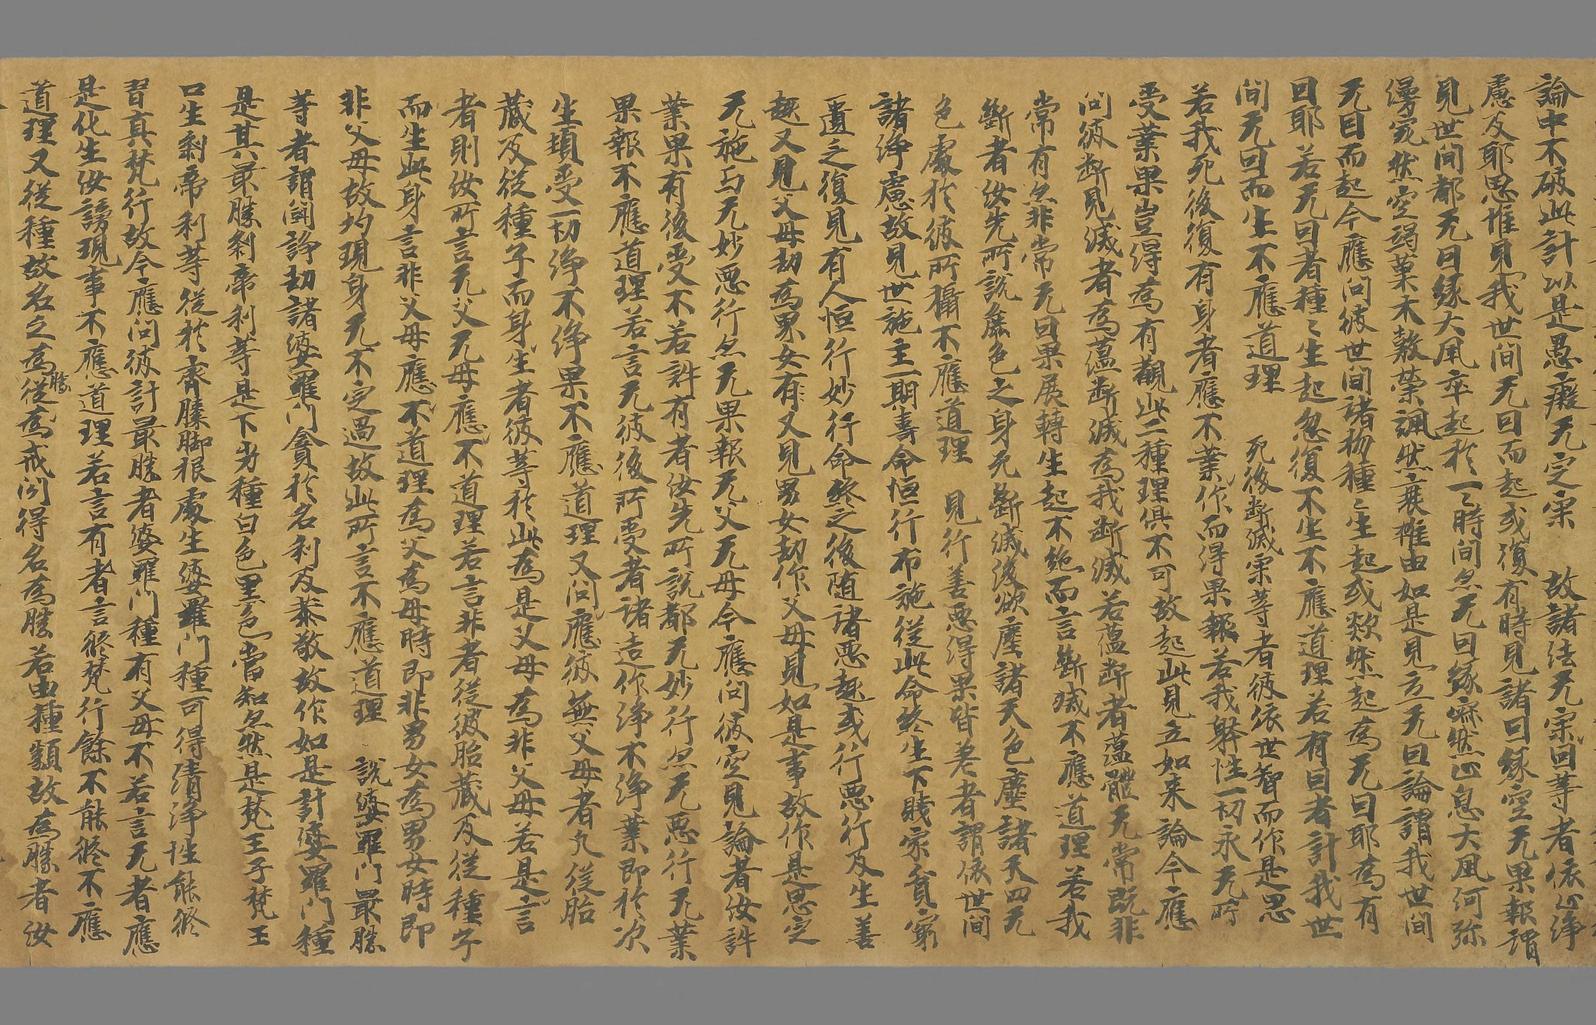 論中不破此計以是愚癡无定宗 故諸法无宗曰等者依止淨
慮及耶思惟見我世間无因而起或復有時見諸因緣空无果報謂
見世間都无因緣大風卒起於一時間忽无因緣寂然止息大風何弥
漫宛然空弱菓木敷榮颯然衰摧由如是見立无因論謂我世間
无因而起今應問彼世間諸物種〻生起或欻然起為无因耶為有
因耶若无因者種〻生起忽復不生不應道理若有因者計我世
間无因而生不應道理 死後斷滅宗等者彼依世智而作是思
若我死後復有身者應不業作而得果報若我躰性一切永无所
受業果豈得為有觀此二種理俱不可故起此見立如来論今應
問彼斷見滅者為蘊斷滅為我斷滅若蘊斷者蘊體无常既非
常有忽非常无因果展轉生起不絶而言斷滅不應道理若我
斷者汝先所說麁色之身死斷滅後欲塵諸天色塵諸天四无
色處於彼所攝不應道理 見行善惡得果皆差者謂依世間
諸淨慮故見世施主一期壽命恒行布施從此命終生下賤家貧窮
匱乏復見有人恒行妙行命終之後墮諸惡趣或行惡行及生善
趣又見父母劫為男女有又見男女劫作父母見如是事故作是思定
无施与无妙惡行忽无果報无父无母今應問彼空見論者汝許
業果有後受不若許有者汝先所說都无妙行忽无惡行无業
果報不應道理若言无彼後所受者諸造作淨不淨業即於次
生頊受一切淨不淨果不應道理又問應彼無父母者凡從胎
蔵及從種子而身生者彼等於此為是父母為非父母若是言
者則汝所言无父无母應不道理若言非者從彼胎蔵及從種子
而生此身言非父母應不道理為父為母時即非男女為男女時即
非父母故灼現身无不定過故此所言不應道理 說婆羅門最勝
等者謂鬪諍劫諸婆羅門貪於名利及恭敬故作如是計婆羅門種
是其最勝刹帝利等是下劣種白色黑色當知忽然是梵王子梵王
口生刹帝利等從於齊膝脚根處生婆羅門種可得清淨性能修
習真梵行故今應問彼計最勝者婆羅門種有父母不若言无者應
是化生汝謗現事不應道理若言有者言修梵行餘不能修不應
道理又從種故名之為勝從為戒閑得名為勝若由種類故為勝者汝